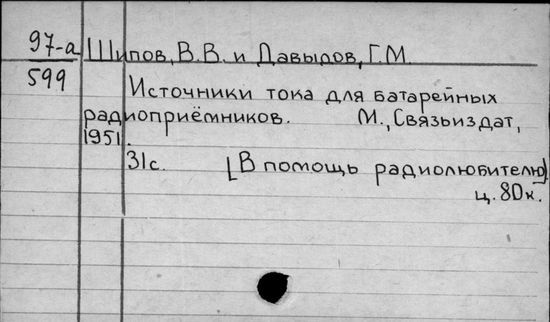 97-а Шипов, В.В. и Давыдов, Г.М.
599
Источники тока для батарейных
радиоприёмников. М., Связьиздат,
1951.
31с. [В помощь радиолюбителю].
ц. 80к.